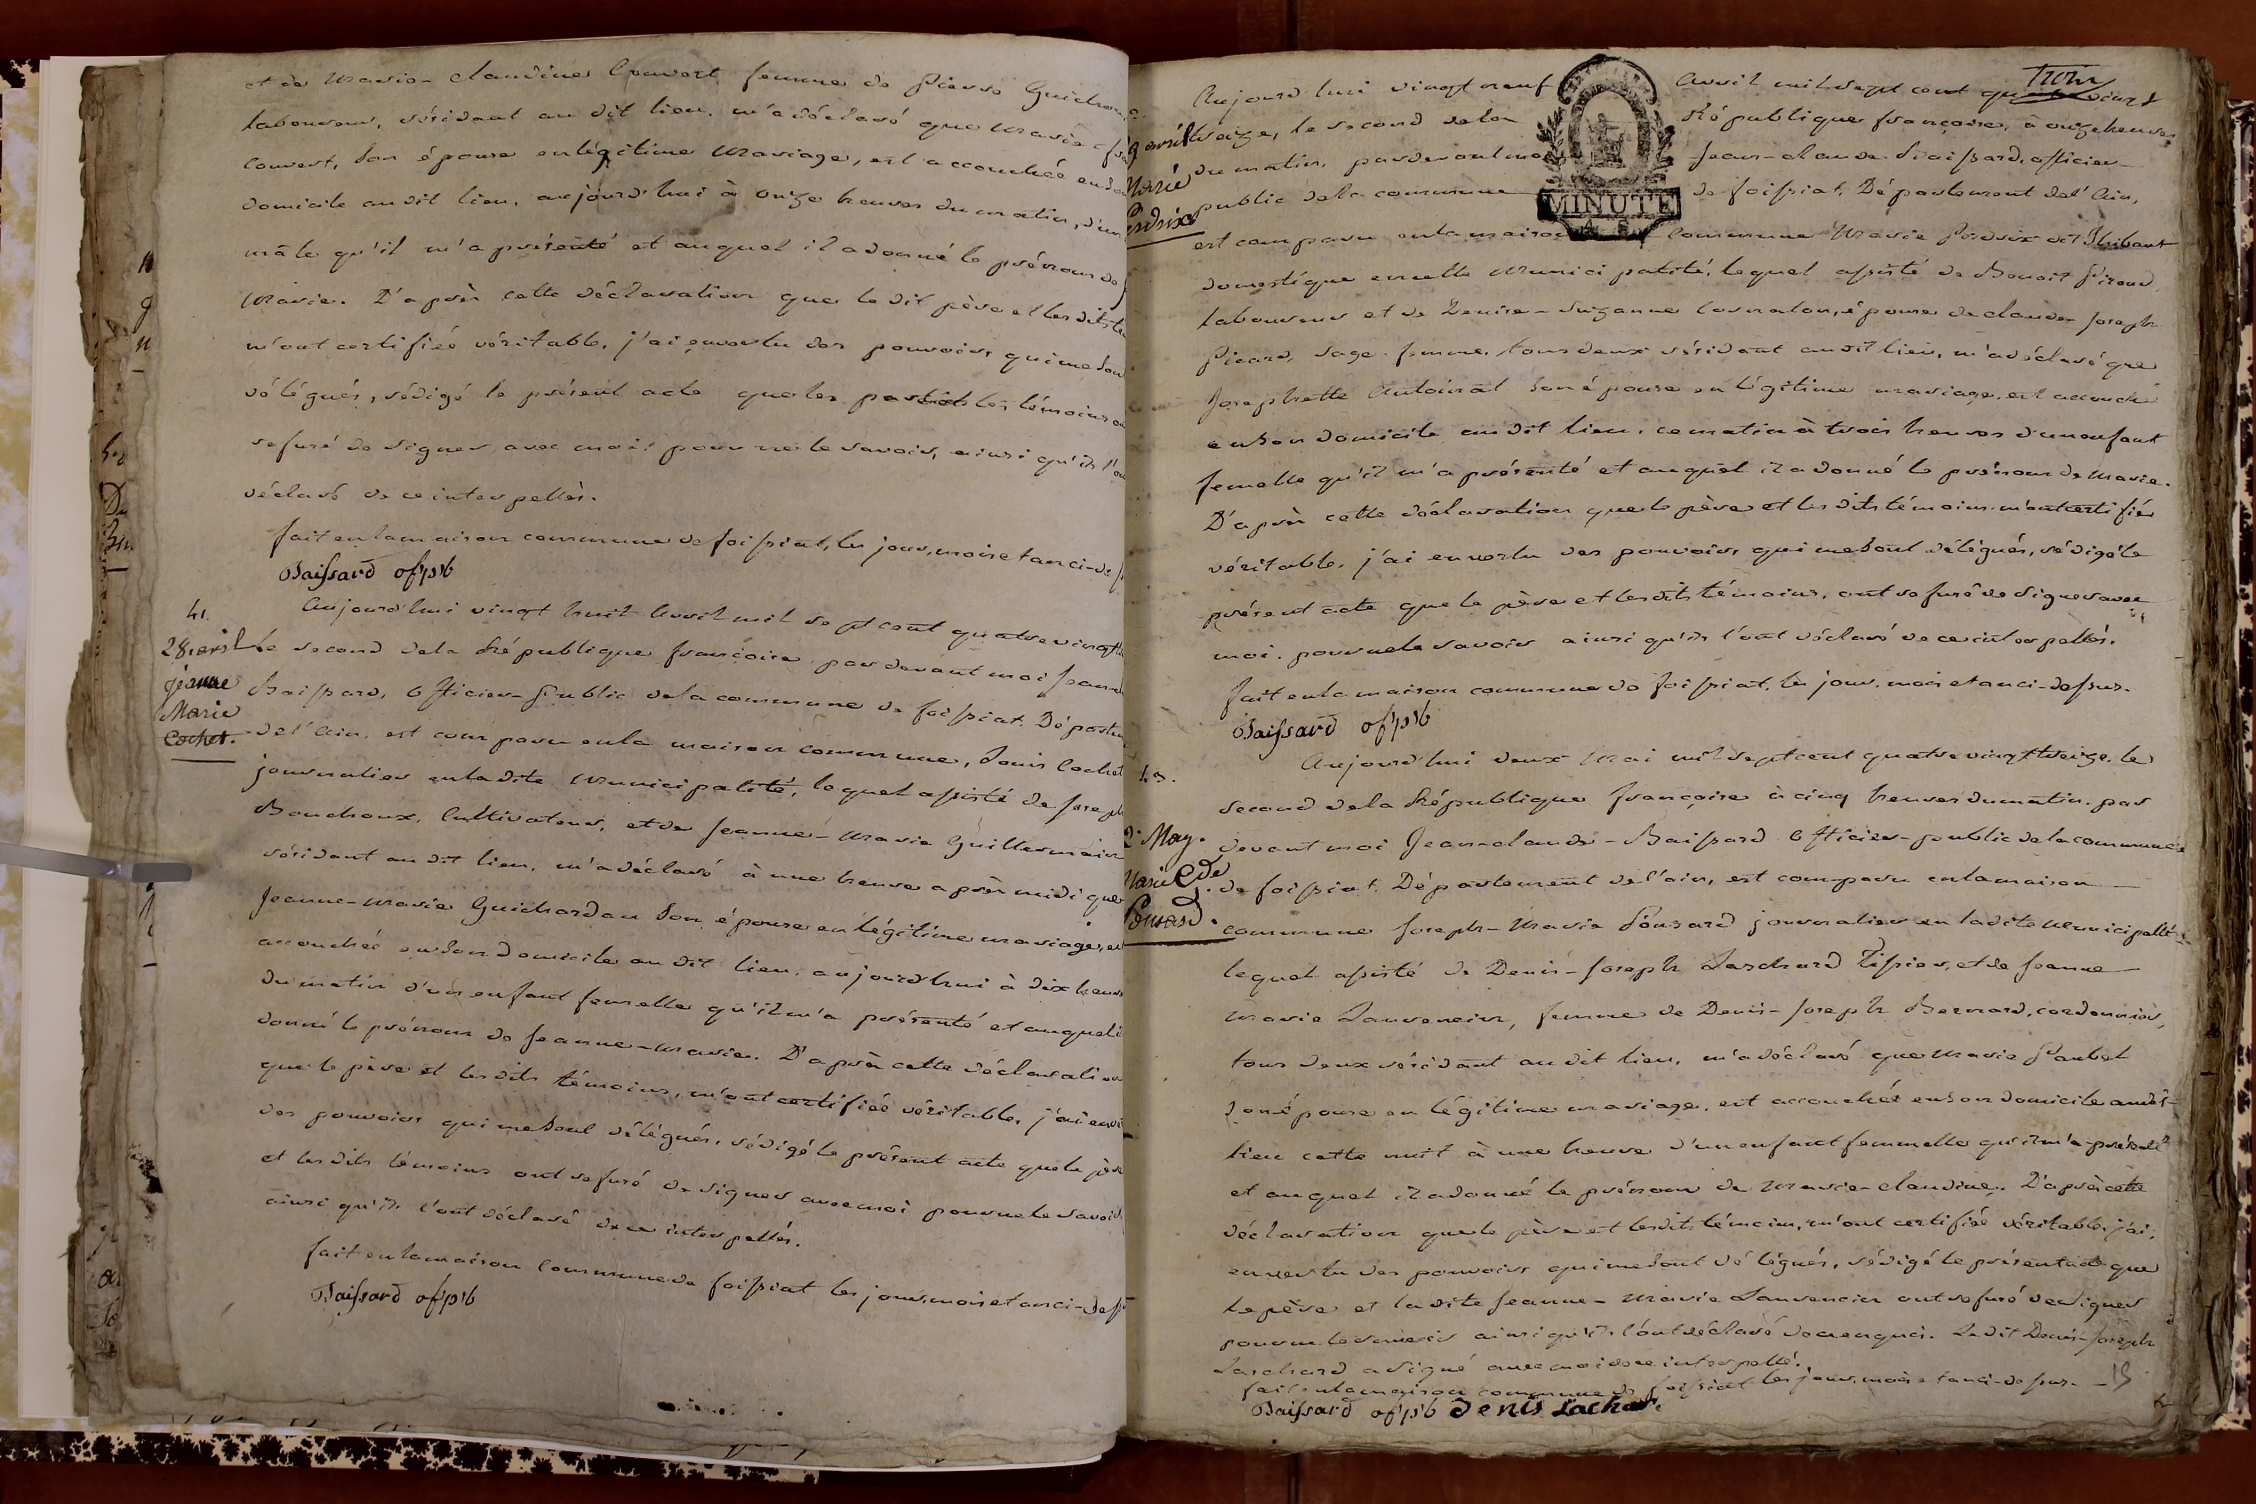 et de Marie-Claudine Convert femme de Pierre Guichard
laboureur, résidant au dit lieu. m'a déclaré que Marie
Convert, son épouse en légitime Mariage, est accouchée en son
domicile au dit lieu, aujourd'hui à onze heures du matin, d'un
mâle qu'il m'a présenté et auquel il a donné le prénom de
Marie. D'après cette déclaration que le dit père et les dits
m'ont certifiée véritable, j'ai en vertu des pouvoirs qui me sont
délégués, rédigé le présent acte que les témoins
refusé de signer avec moi pour ne le savoir, ainsi qu'ils l'ont
déclaré de ce interpellés.
fait en la maison commune de foissiat, les jour, mois et an ci-de
Baissard of. pb
41.
28. avril
Jeanne
Marie
Cochet.
Aujourd'hui vingt huit Avril mil sept cent quatre vingt
le second de la République françoise par devant moi Jean
Baissard, Officier-Public de la commune de foissiat. Départem
de l'Ain, est comparu en la maison commune, Louis Cochet
journalier en la dite Municipalité, lequel assisté de Joseph
Bouchoux, Cultivateur, et de Jeanne-Marie Guillermain
résidant au dit lieu, m'a déclaré à une heure après midi que
Jeanne-Marie Guichardan son épouse en légitime mariage, est
accouchée en son domicile au dit lieu, aujourd'hui à dix heures
du matin d'un enfant femelle qu'il m'a présenté et auquel il
donné le prénom de Jeanne-Marie. D'après cette déclaration
que le père et les dits témoins, m'ont certifiée véritable, j'ai en ver
des pouvoirs qui me sont délégués, rédigé le présent acte que le père
et les dits témoins ont refusé de signer avec moi pour ne le savoir
ainsi qu'ils l'ont déclaré de ce interpellés.
fait en la maison Commune de foissiat les jour, mois et an ci-dess
Baissard of. pb
Trois
MINUTE
9 avril
Marie
Perdrix
Aujourd'hui vingt neuf Avril mil sept cent quatre vingt
treize, le second de la République françoise, à onze heures
du matin, par devant moi Jean-Claude Baissard, officier
public de la commune de foissiat, Département de l'Ain,
est comparu en la maison Commune Marie Perdrix dit Thibaut
domestique en cette Municipalité, lequel assisté de Benoit Piroud
laboureur et de Denise-Suzanne Cornaton, épouse de Claude-Joseph
Picard, sage-femme, tous deux résidant au dit lieu, m'a déclaré que
Josephette Antoinat son épouse en légitime mariage, est accouchée
en son domicile au dit lieu, ce matin à trois heures d'un enfant
femelle qu'il m'a présenté et auquel il a donné le prénom de Marie.
D'après cette déclaration que le père et les dits témoins m'ont certifiée
véritable, j'ai en vertu des pouvoirs qui me sont délégués, rédigé le
présent acte que le père et les dits témoins, ont refusé de signer avec
moi. pour ne le savoir ainsi qu'ils l'ont déclaré de ce interpellés.
fait en la maison commune de foissiat, les jour, mois et an ci-dessus.
Baissard of. pb
43.
2. May.
Marie Cde
Ponsard.
Aujourd'hui deux Mai mil sept cent quatre vingt treize. le
second de la République françoise à cinq heures du matin. par
devant moi Jean-claude-Baissard Officier-public de la commune
de foissiat, Département de l'ain, est comparu en la maison
commune Joseph-Marie Ponsard journalier en la dite Municipalité
lequel assisté de Denis-Joseph Larchard Tissier, et de Jeanne
Marie Laurencin, femme de Denis-Joseph Bernard, cordonnier,
tous deux résidant au dit lieu, m'a déclaré que Marie Paubel
son épouse en légitime mariage, est accouchée en son domicile au dit
lieu cette nuit à une heure d'un enfant femmelle qu'il m'a présenté
et auquel il a donné le prénom de Marie-claudine. D'après cette
déclaration que le père et les dits témoins, m'ont certifiée véritable, j'ai,
en vertu des pouvoirs qui me sont délégués, rédigé le présent acte que
le père et la dite Jeanne-Marie Laurencin ont refusé de signer
pour ne le savoir ainsi qu'ils l'ont déclaré de ce enquis. Le dit Denis-Joseph
Larchard a signé avec moi de ce interpellé.
fait en la maison commune de foissiat les jour, mois et an ci-dessus.
Baissard of. pb Denis Lachar